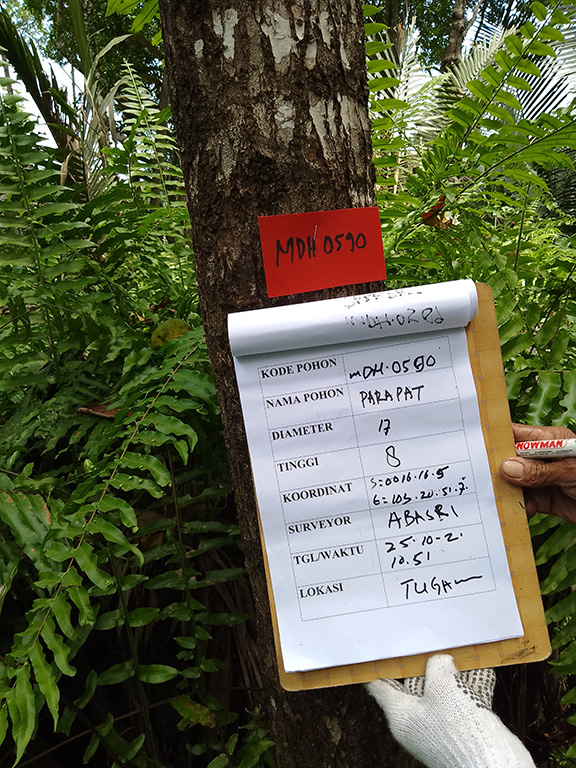 MDH 0590
KODE POHON mDH.0590
NAMA POHON PARAPAT
DIAMETER 17
TINGGI 8
KOORDINAT S=0016.16.5
E=103.20.51.7
SURVEYOR ABASRI
TGL/WAKTU 25.10-2.
10.51
LOKASI TUGAN
SNOWMAN